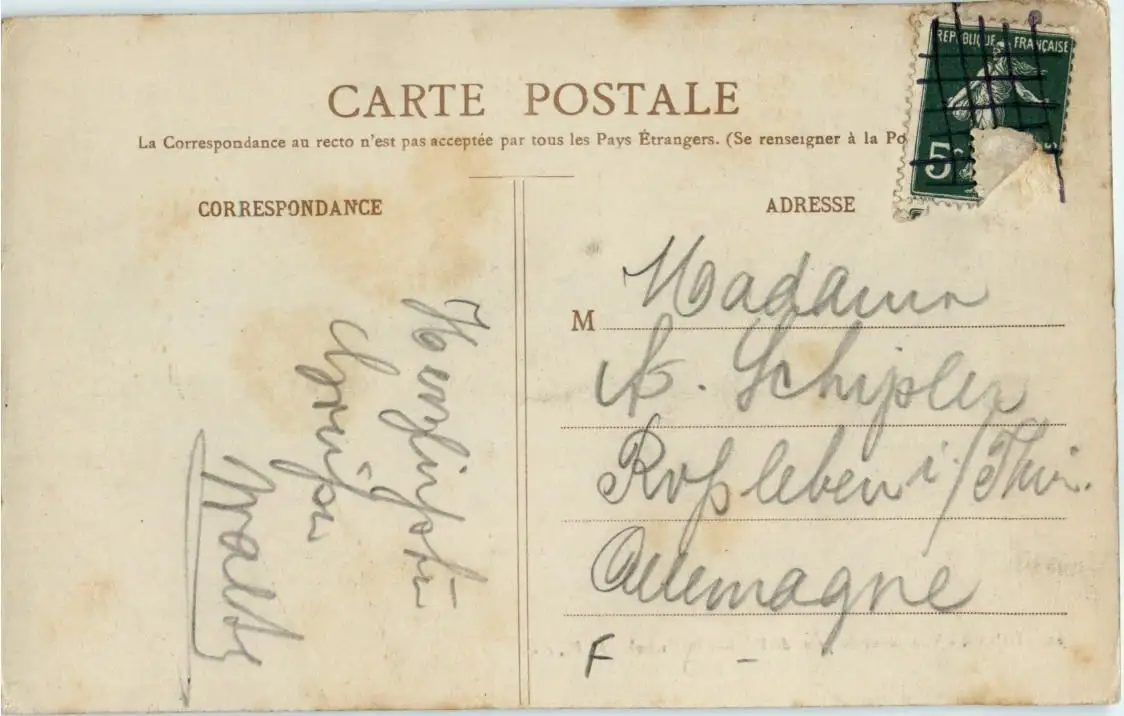 CARTE POSTALE
La Correspondance au recto n'est pas acceptée par tous les Pays Étrangers. (Se renseigner à la Po
REPUBLIQUE FRANÇAISE
5c
CORRESPONDANCE
ADRESSE
Herzlichste
Grüße
M Madame
Schipler
Roßleben i/Thür.
Allemagne
F